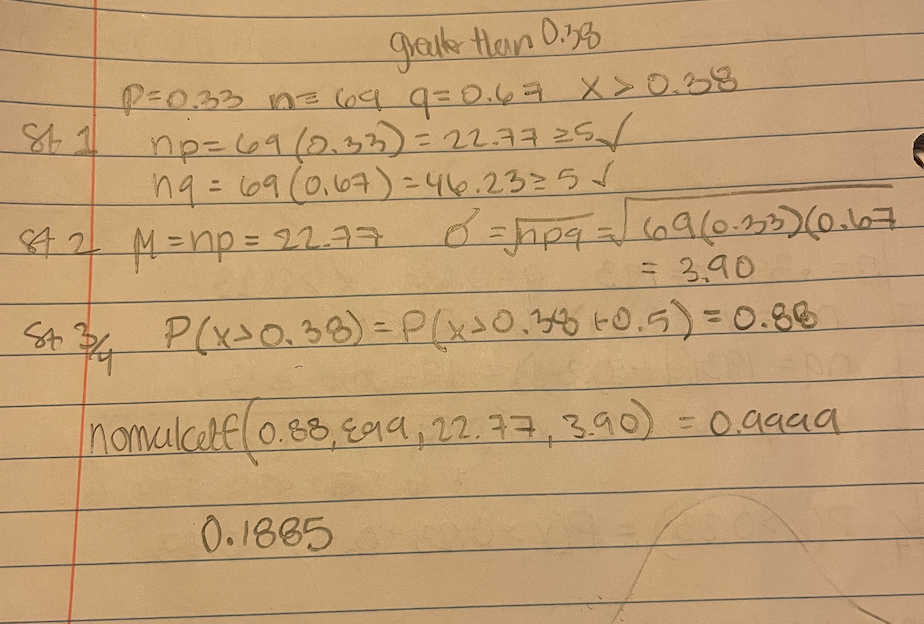 greater than 0.38
P=0.33 n=69 q=0.67 x>0.38
St 1 np=69(0.33)=22.77≥5✓
nq=69(0.67)=46.23≥5✓
St 2 μ=np=22.77 σ=√npq=√69(0.33)(0.67
=3.90
St 3/4 P(x>0.38)=P(x>0.38+0.5)=0.88
(0.88,E99,22.77,3.90)=0.9999
0.1885